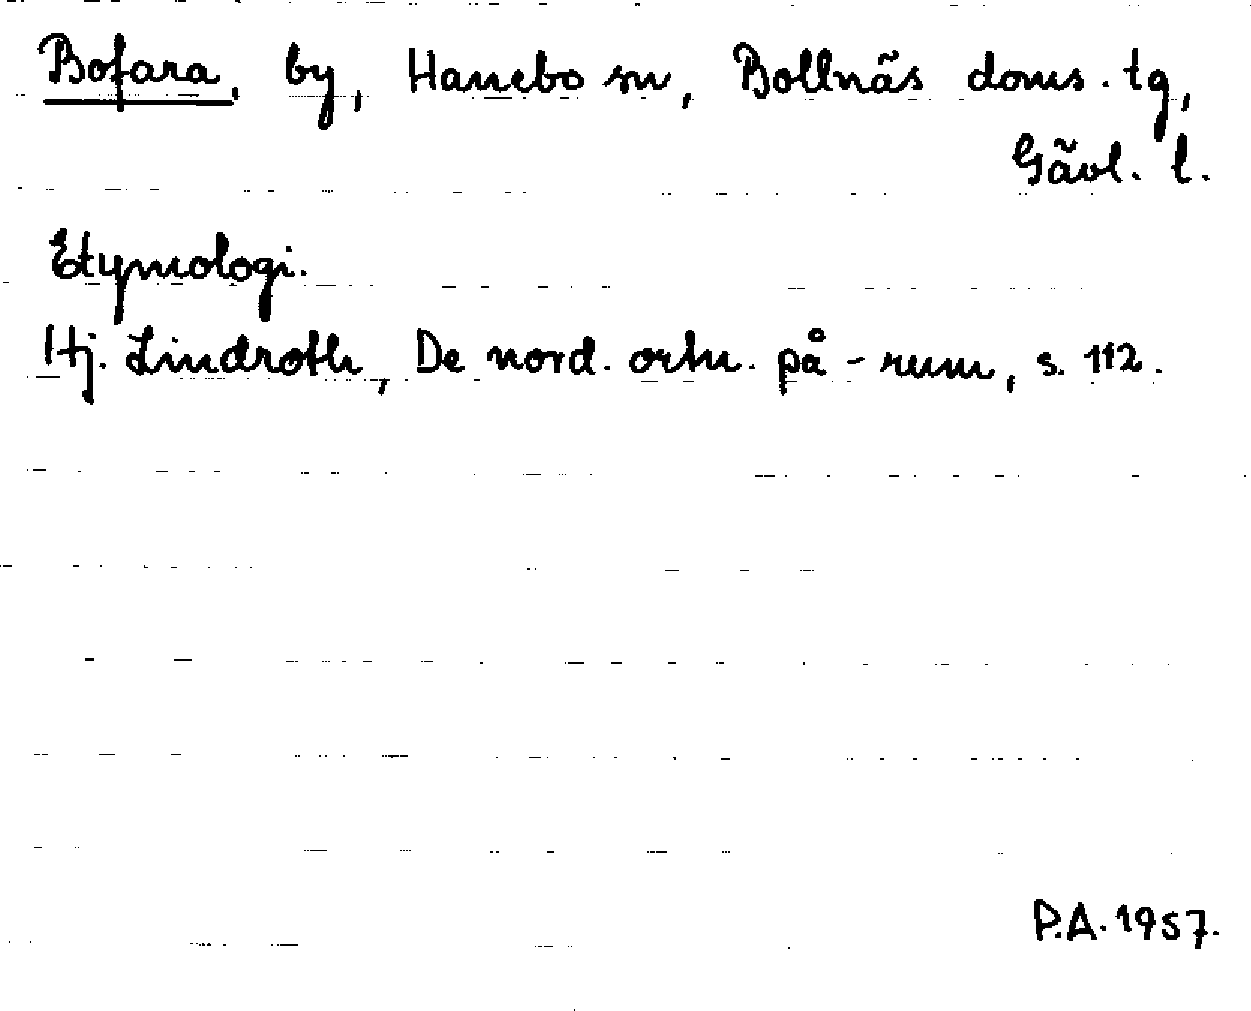 Bofara, by, Hanebo sn, Bollnäs doms. tg,
Gävl. l.
Etymologi.
Hj. Lindroth, De nord. ortn. på -rum, s. 112.
P.A. 1957.